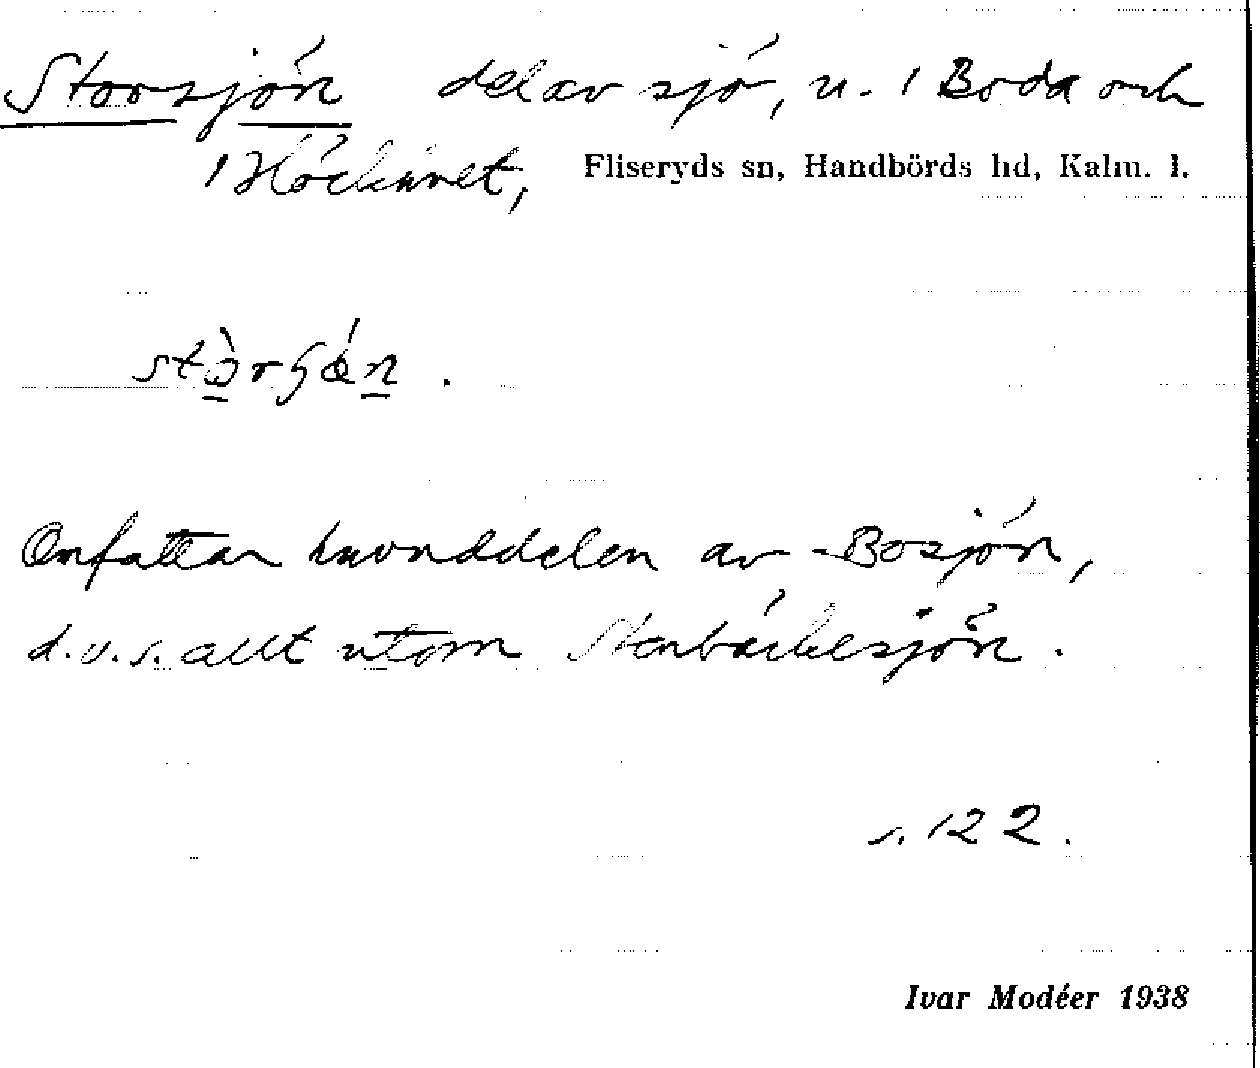 Storsjön del av sjö, u. 1 Boda och
1 Höckhult,
Fliseryds sn, Handbörds hd, Kalm. l.
Omfattar huvuddelen av Bosjön,
d.v.s. allt utom Stenbäckesjön.
s. 122.
Ivar Modéer 1938